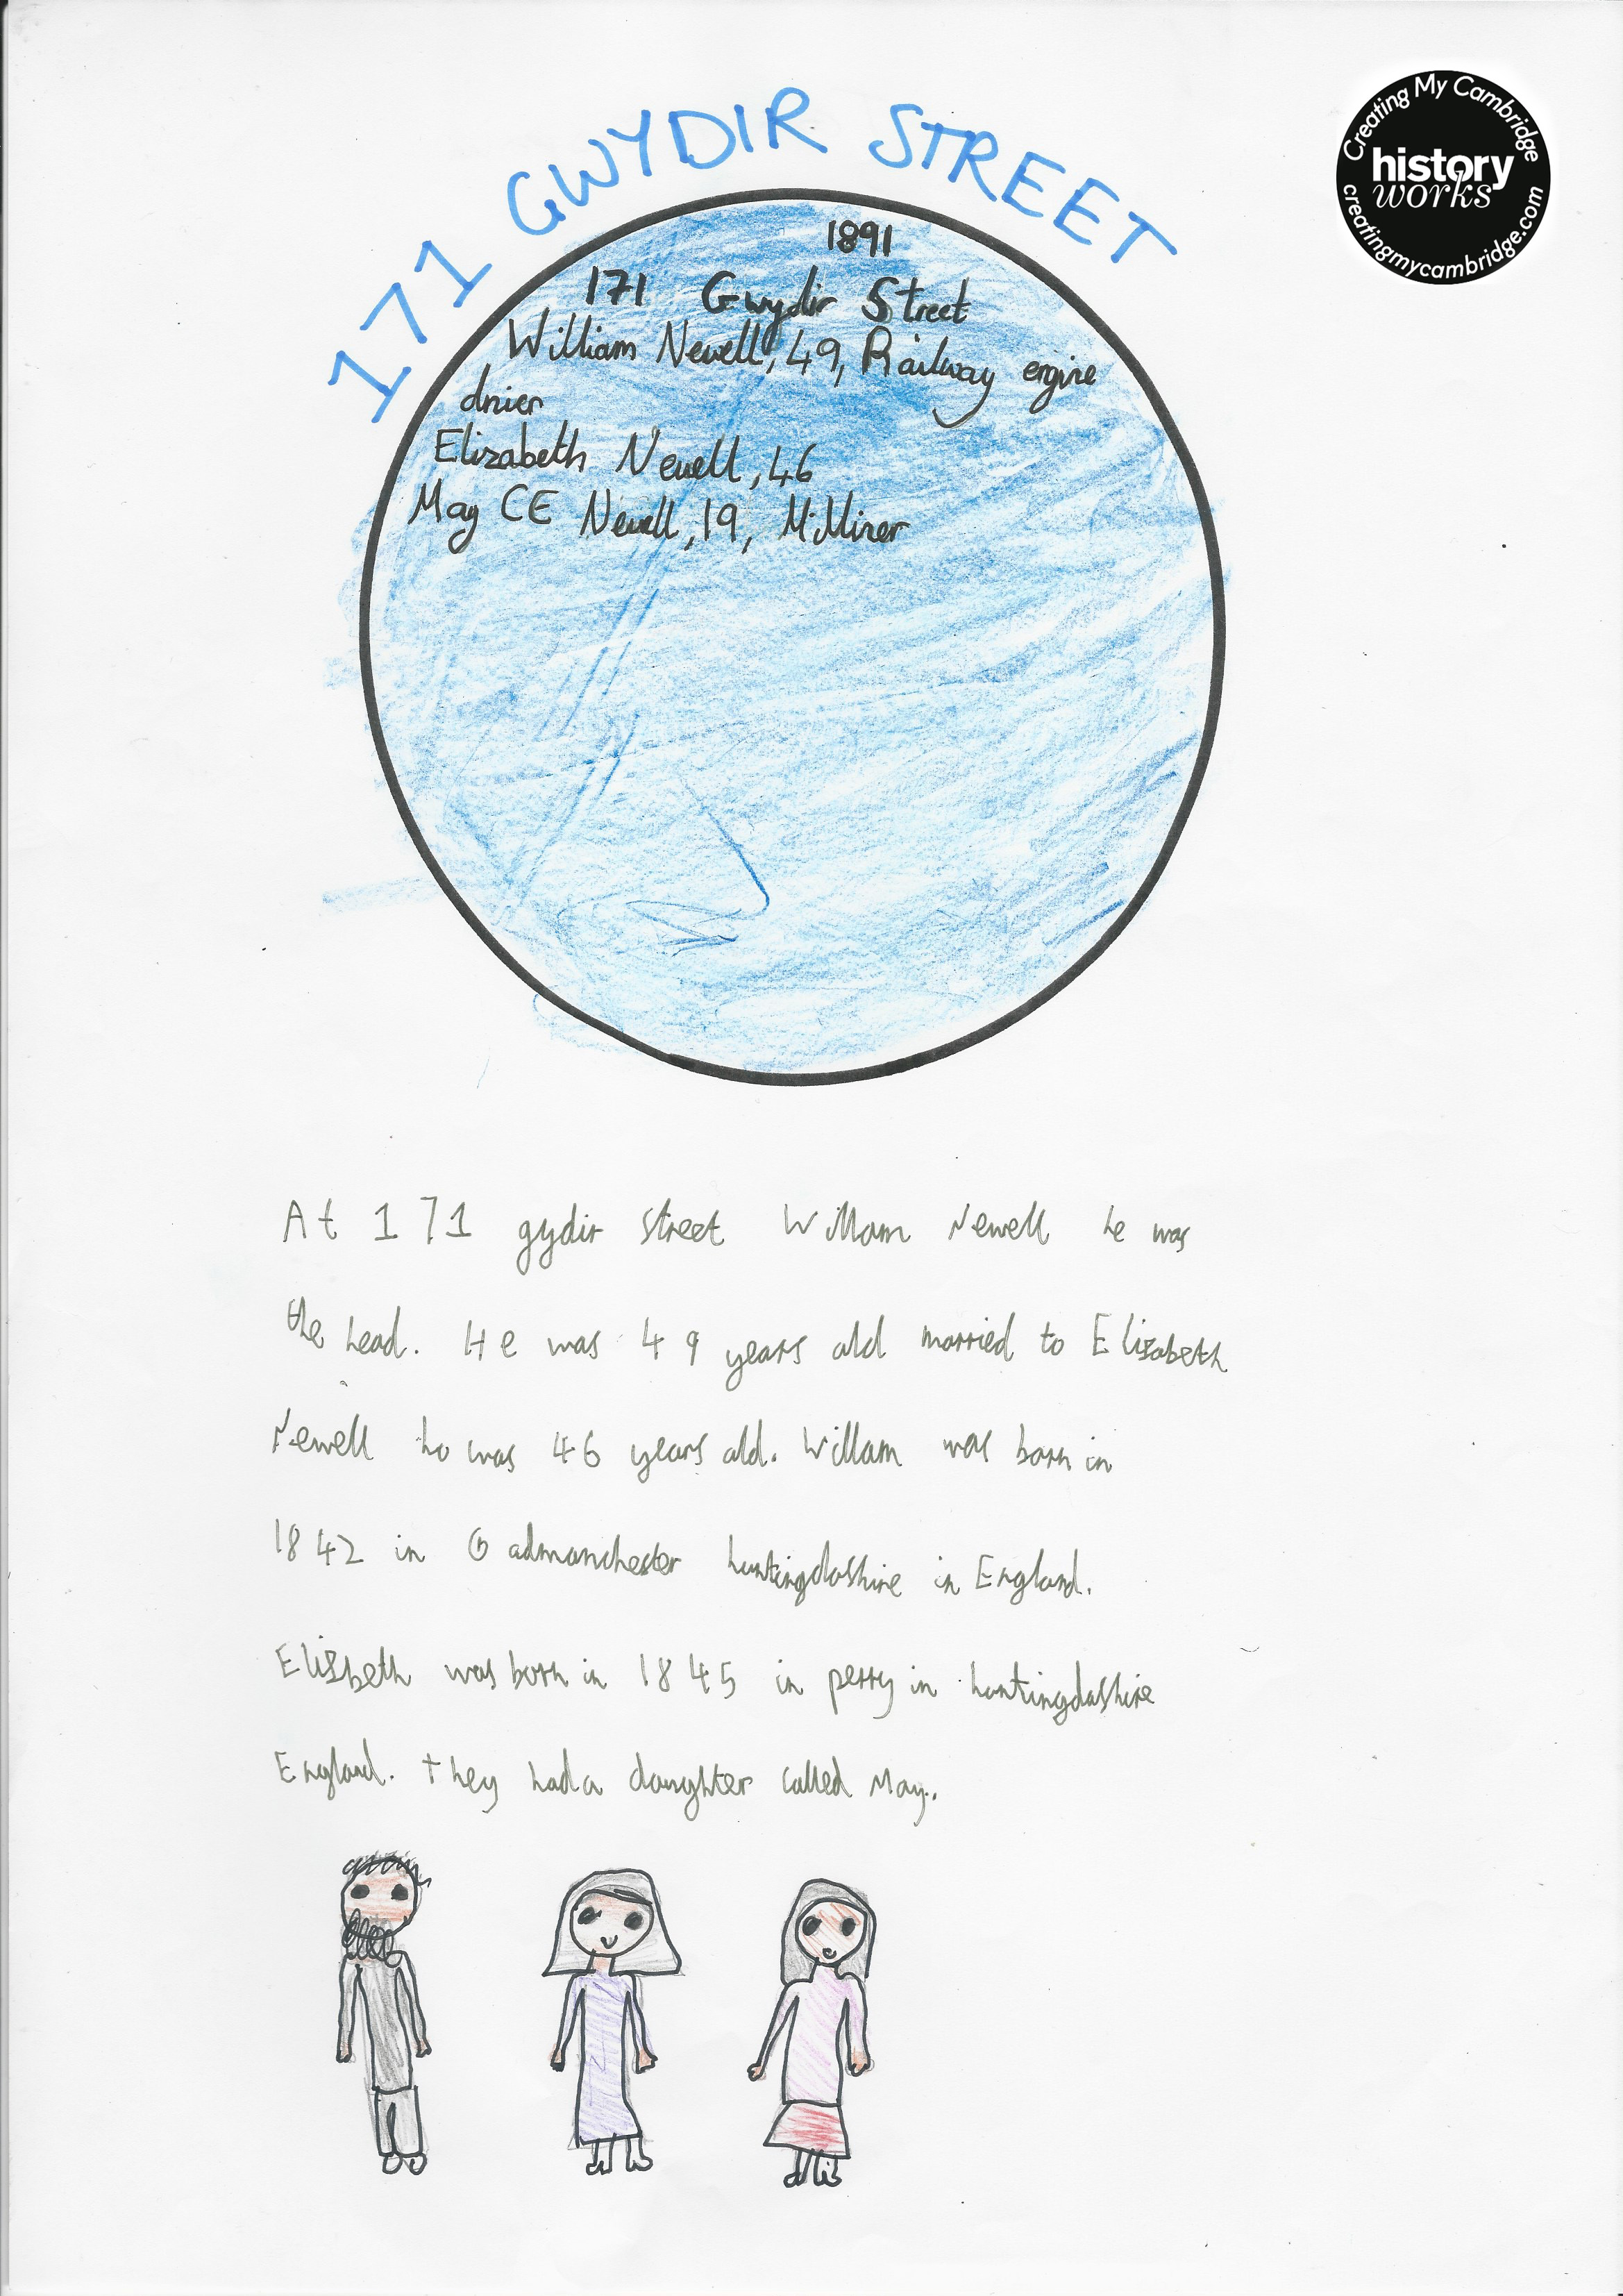 171 GWYDIR STREET
Creating My Cambridge
history
works
creatingmycambridge.com
1891
171 Gwydir Street
William Newell, 49, Railway engine
drier
Elizabeth Newell, 46
May CE Newell, 19, Milliner
At 171 gydir street Willam Newell he was
the head. He was 49 years old married to Elizabeth
Newell ho was 46 years old. Willam was born in
1842 in Godmanchester huntingdoshire in England.
Elizbeth was born in 1845 in perry in huntingdoshire
England. they had a daughter called May.